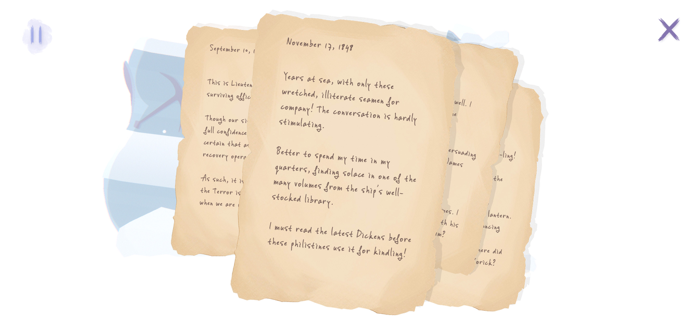 September 10, 1
This is Lieuten
surviving offic
Though our si
full confidence
certain that a
recovery opera
As such, it i
the Terror is
when we are
November 17, 1848
Years at sea, with only these
wretched, illiterate seamen for
company! The conversation is hardly
stimulating.
Better to spend my time in my
quarters, finding solace in one of the
many volumes from the ship's well-
stocked library.
I must read the latest Dickens before
these philistines use it for kindling!
well. I
ersuading
lames
ves. I
h his
m?
ling!
the
lantern.
acing
ere did